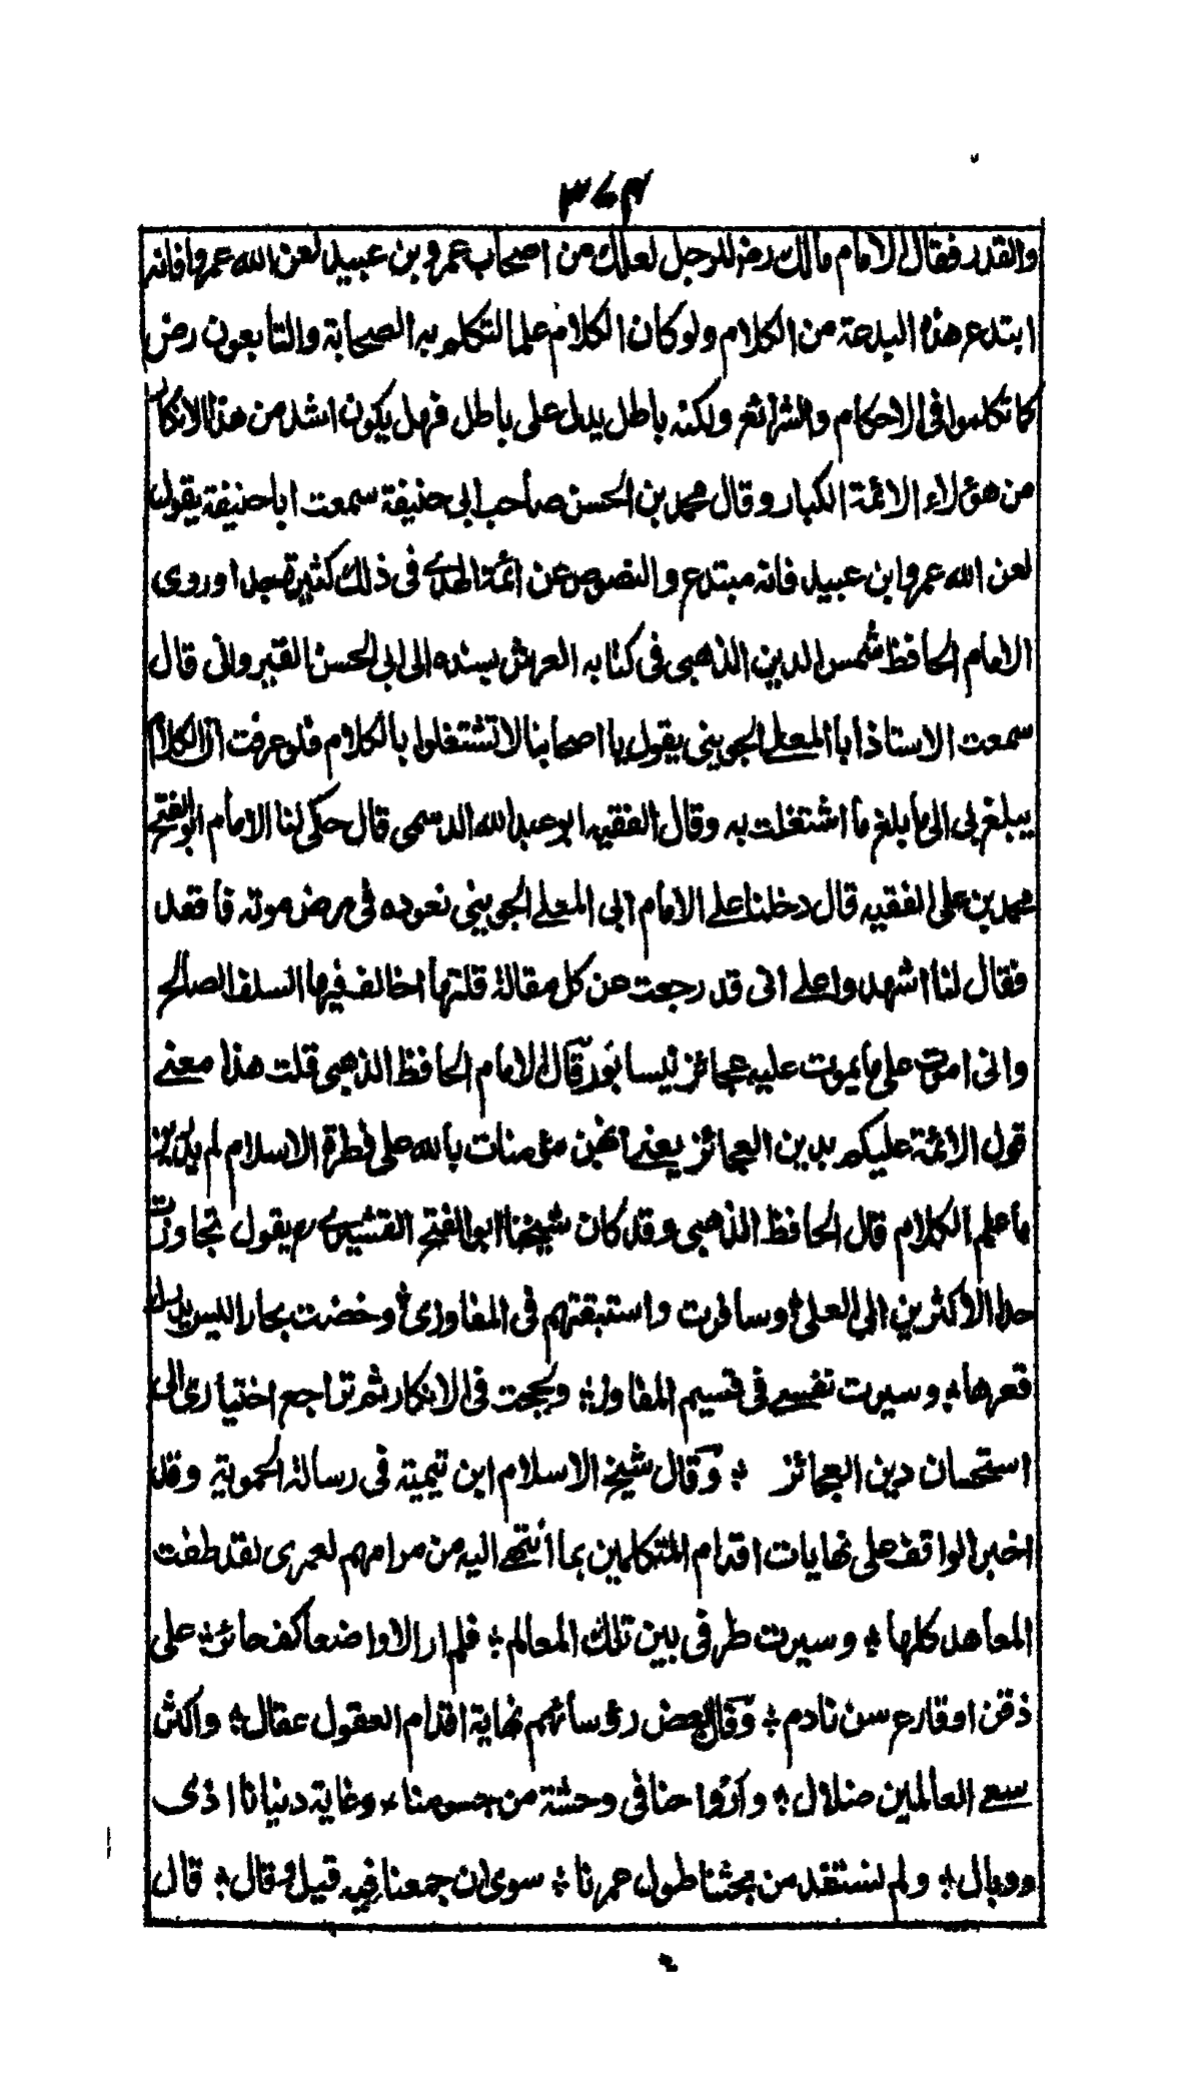 ٣٧٤
والقدر فقال الامام مالك رض للرجل لعلك من اصحاب عمرو بن عبيد لعن الله عمروا فانه
ابتدع هذه البدعة من الكلام ولو كان الكلام علما لتكلم به الصحابة والتابعون رض
كما تكلموا فى الاحكام والشرائع ولكنه باطل يدل على باطل فهل يكون اشد من هذا الانكار
من هؤلاء الائمة الكبار وقال محمد بن الحسن صاحب ابى حنيفة سمعت ابا حنيفة يقول
لعن الله عمروا بن عبيد فانه مبتدع والنصوص عن ائمة الهدى فى ذلك كثيرة جدا وروى
الامام الحافظ شمس الدين الذهبى فى كتابه العرش بسنده الى ابى الحسن القيروانى قال
سمعت الاستاذ ابا المعالى الجوينى يقول يا اصحابنا لا تشتغلوا بالكلام فلو عرفت ان الكلام
يبلغ بى الى ما بلغ ما اشتغلت به وقال الفقيه ابو عبد الله الرسمى قال حكى لنا الامام ابو الفتح
محمد بن على الفقيه قال دخلنا على الامام ابى المعالى الجوينى نعوده فى مرض موته فاقعد
فقال لنا اشهدوا على انى قد رجعت عن كل مقالة قلتها اخالف فيها السلف الصالح
وانى اموت على ما يموت عليه عجائز نيسابور قال الامام الحافظ الذهبى قلت هذا معنى
قول الائمة عليكم بدين العجائز يعنى انهن مؤمنات بالله على فطرة الاسلام لم يدرين
ما علم الكلام قال الحافظ الذهبى وقد كان شيخنا ابو الفتح القشيرى رح يقول تجاوزت
حد الاكثرين الى العلى وسافرت واستبقتهم فى المفاوز وخضت بحارا ليس يدرك
قعرها ؛ وسيرت نفسى فى قسيم المفاوز ؛ ولججت فى الافكار ثم تراجع اختيارى الى
استحسان دين العجائز ؛ وقال شيخ الاسلام ابن تيمية فى رسالة الحموية وقد
اخبر الواقف على نهايات اقدام المتكلمين بما انتهى اليه من مرامهم لعمرى لقد طفت
المعاهد كلها ؛ وسيرت طرفى بين تلك المعالم ؛ فلم ار الا واضعا كف حائر ؛ على
ذقن او قارع سن نادم ؛ وقال بعض رؤسائهم نهاية اقدام العقول عقال ؛ واكثر
سعى العالمين ضلال ؛ وارواحنا فى وحشة من جسومنا ؛ وغاية دنيانا اذى
ووبال ؛ ولم نستفد من بحثنا طول عمرنا ؛ سوى ان جمعنا فيه قيل وقال ؛ قال